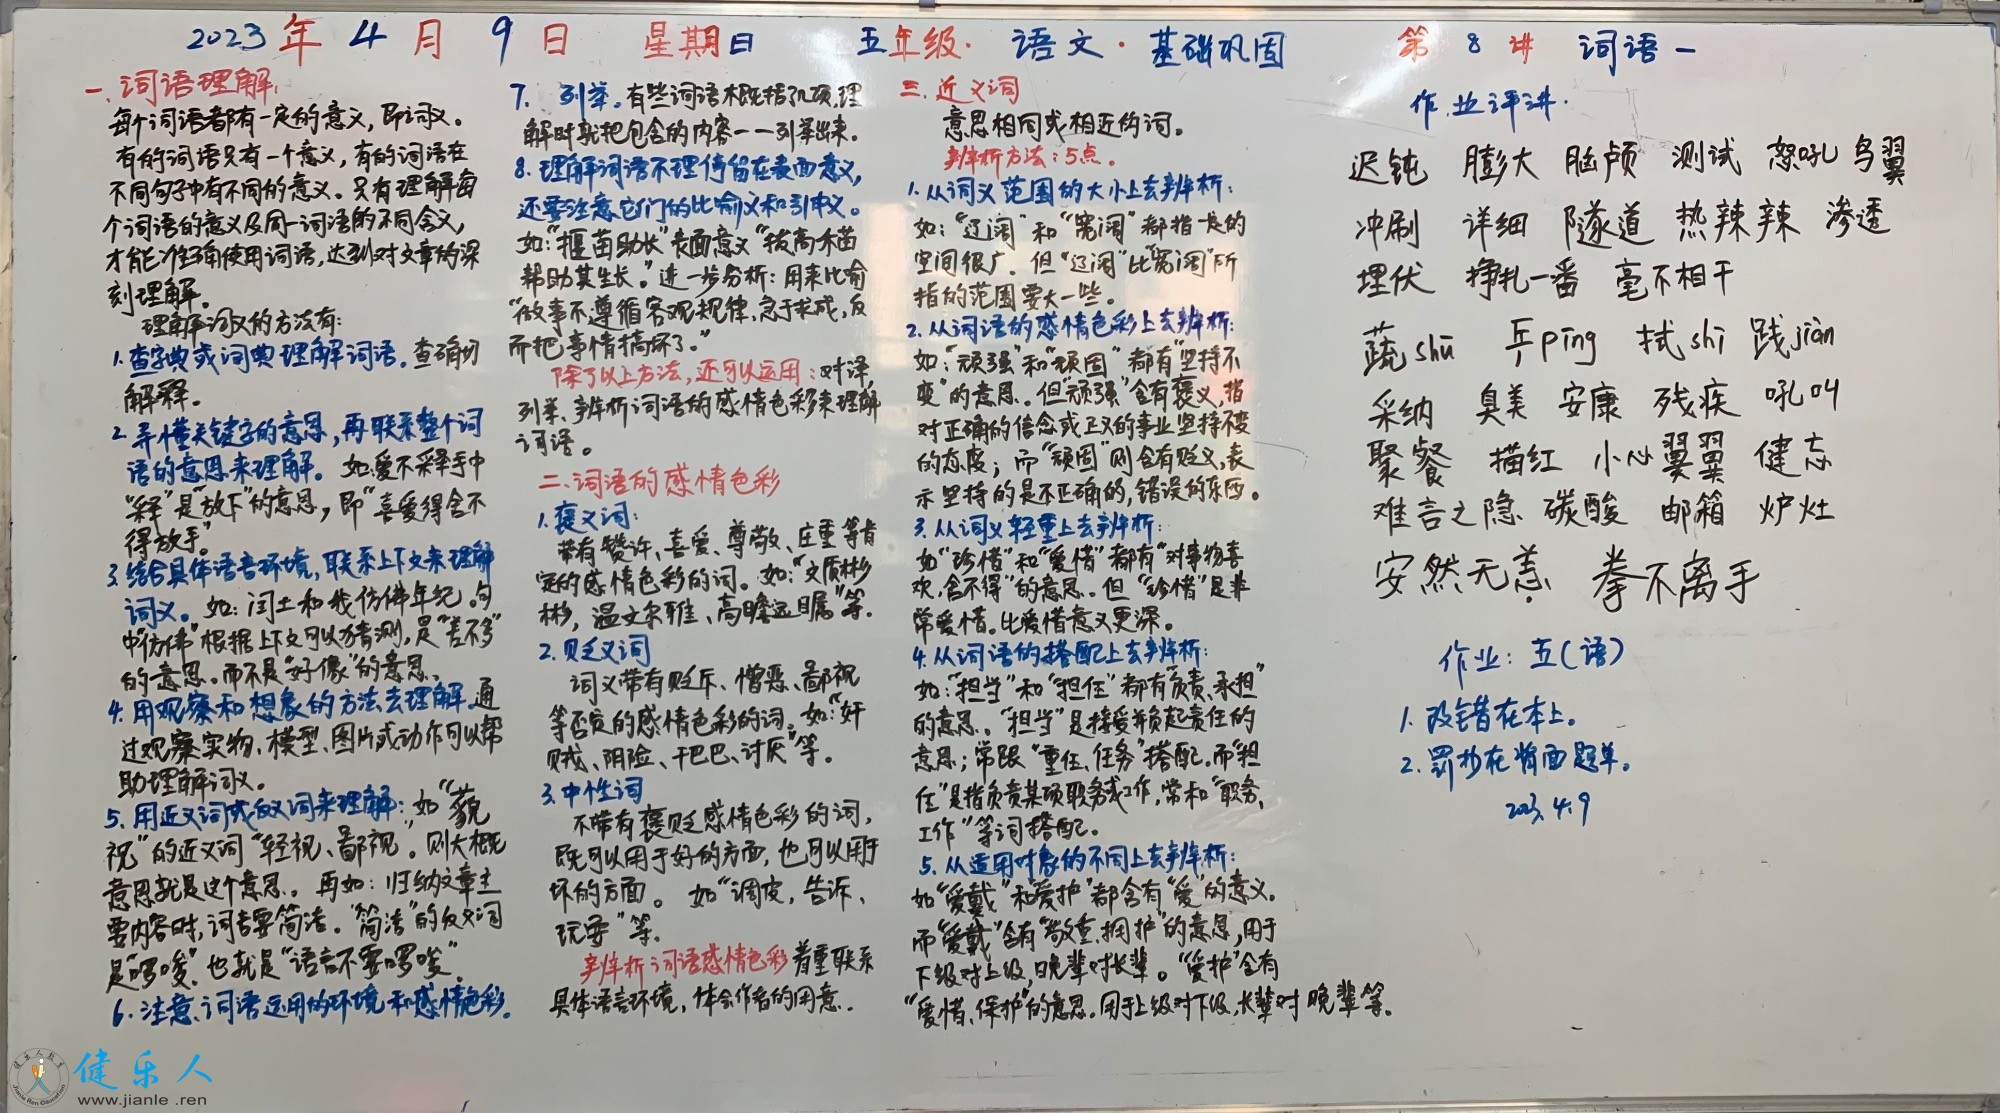 2023年4月9日 星期日 五年级·语文·基础巩固 第8讲 词语一
一、词语理解:
每个词语都有一定的意义,即词义。
有的词语只有一个意义,有的词语在
不同句子中有不同的意义。只有理解每
个词语的意义及同一词语的不同含义,
才能准确使用词语,达到对文章的深
刻理解。
理解词义的方法有:
1.查字典或词典理解词语。查确切
解释。
2.弄懂关键字的意思,再联系整个词
语的意思来理解。如:爱不释手中
“释”是“放下”的意思,即“喜爱得舍不
得放手。”
3.结合具体语言环境,联系上下文来理解
词义。如:闰土和我仿佛年纪。句
中“仿佛”根据上下文可以猜测,是“差不多”
的意思。而不是“好像”的意思。
4.用观察和想象的方法去理解。通
过观察实物、模型、图片或动作可以帮
助理解词义。
5.用近义词或反义词来理解:如“藐
视”的近义词“轻视、鄙视”。则大概
意思就是这个意思。再如:归纳文章主
要内容时,词言要简洁。“简洁”的反义词
是“啰唆”。也就是“语言不要啰唆”。
6.注意词语运用的环境和感情色彩。
7.列举。有些词语概指几项,理
解时就把包含的内容一一列举出来。
8.理解词语不理停留在表面意义,
还要注意它们的比喻义和引申义。
如:“揠苗助长”表面意义“拔高禾苗
帮助其生长。”进一步分析:用来比喻
“做事不遵循客观规律,急于求成,反
而把事情搞坏了。”
除了以上方法,还可以运用:对译,
列举、辨析词语的感情色彩来理解
词语。
二、词语的感情色彩
1.褒义词:
带有赞许、喜爱、尊敬、庄重等肯
定的感情色彩的词。如:“文质彬
彬,温文尔雅、高瞻远瞩”等.
2.贬义词
词义带有贬斥、憎恶、鄙视
等否定的感情色彩的词。如:“奸
贼、阴险、干巴巴、讨厌”等。
3.中性词
不带有褒贬感情色彩的词,
既可以用于好的方面,也可以用于
坏的方面。如“调皮,告诉,
玩耍”等.
辨析词语感情色彩着重联系
具体语言环境,体会作者的用意.
三.近义词
意思相同或相近的词。
辨析方法:5点。
1.从词义范围的大小上去辨析:
如:“辽阔”和“宽阔”都指一是的
空间很广.但“辽阔”比“宽阔”所
指的范围要大一些。
2.从词语的感情色彩上去辨析:
如:“顽强”和“顽固”都有“坚持不
变”的意思.但“顽强”含有褒义,指
对正确的信念或正义的事业坚持不变
的态度;而“顽固”则含有贬义,表
示坚持的是不正确的,错误的东西。
3.从词义轻重上去辨析:
如“珍惜”和“爱惜”都有“对事物喜
欢,舍不得”的意思.但“珍惜”是非
常爱惜。比爱惜意义更深。
4.从词语的搭配上去辨析:
如:“担当”和“担任”都有“负责、承担”
的意思。“担当”是接受并负起责任的
意思;常跟“重任、任务”搭配。而“担
任”是指负责某项职务或工作,常和“职务、
工作”等词搭配。
5.从适用对象的不同上去辨析:
如“爱戴”和“爱护”都含有“爱”的意义.
而“爱戴”含有“敬重、拥护”的意思,用于
下级对上级,晚辈对长辈。“爱护”含有
“爱惜、保护”的意思.用于上级对下级,长辈对晚辈等.
作业评讲.
迟钝 膨大 脑颅 测试 怒吼 鸟翼
冲刷 详细 隧道 热辣辣 渗透
埋伏 挣扎一番 毫不相干
蔬shū 乒pīng 拭shì 践jiàn
采纳 臭美 安康 残疾 吼叫
聚餐 描红 小心翼翼 健忘
难言之隐 碳酸 邮箱 炉灶
安然无恙 拳不离手
作业:五(语)
1.改错在本上。
2.罚抄在背面题单。
2023.4.9
健乐人
www.jianle.ren